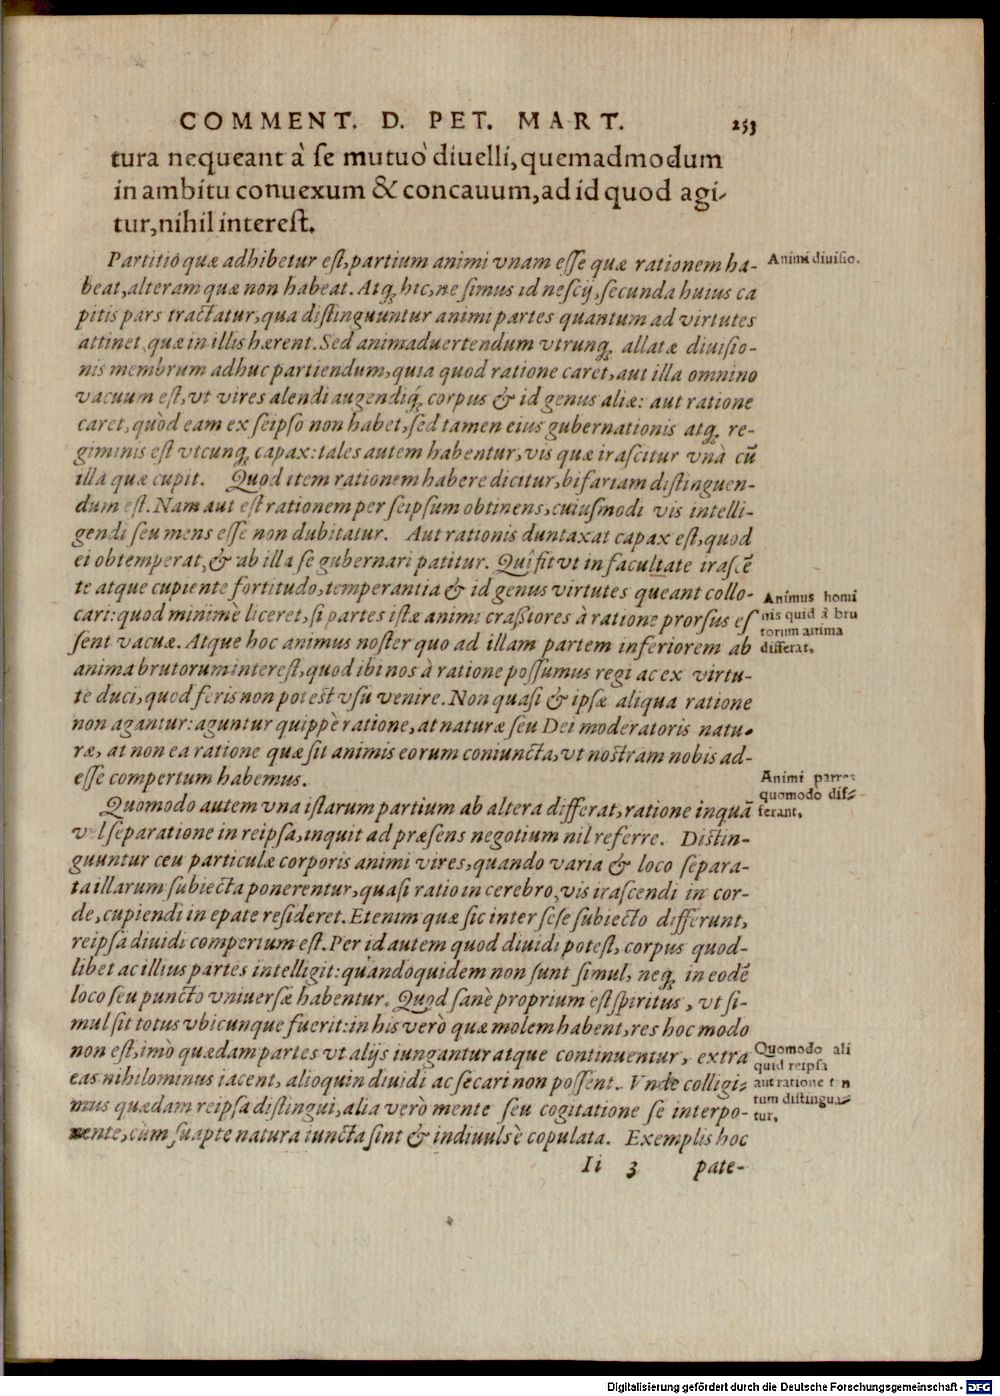 COMMENT. D. PET. MART. 253
tura nequeant à se mutuò diuelli, quemadmodum
in ambitu conuexum & concauum, ad id quod agi-
tur, nihil interest.
Partitio quæ adhibetur est, partium animi vnam esse quæ rationem ha-
beat, alteram quæ non habeat. Atq; hîc, ne simus id nescij, secunda huius ca
pitis pars tractatur, qua distinguuntur animi partes quantum ad virtutes
attinet, quæ in illis hærent. Sed animaduertendum vtrunq; allatæ diuisio-
nis membrum adhuc partiendum, quia quod ratione caret, aut illa omnino
vacuum est, vt vires alendi augendiq; corpus & id genus aliæ: aut ratione
caret, quòd eam ex seipso non habet, sed tamen eius gubernationis atq; re-
giminis est vtcunq; capax: tales autem habentur, vis quæ irascitur vnà cū
illa quæ cupit. Quod item rationem habere dicitur, bifariam distinguen-
dum est. Nam aut est rationem per seipsum obtinens, cuiusmodi vis intelli-
gendi seu mens esse non dubitatur. Aut rationis duntaxat capax est, quod
ei obtemperat, & ab illa se gubernari patitur. Qui fit vt in facultate irascē
te atque cupiente fortitudo, temperantia & id genus virtutes queant collo-
cari: quod minimè liceret, si partes istæ animi craßiores à ratione prorsus es
sent vacuæ. Atque hoc animus noster quo ad illam partem inferiorem ab
anima brutorum interest, quod ibi nos à ratione possumus regi ac ex virtu-
te duci, quod feris non potest vsu venire. Non quasi & ipsæ aliqua ratione
non agantur: aguntur quippè ratione, at naturæ seu Dei moderatoris natu-
ræ, at non ea ratione quæ sit animis eorum coniuncta, vt nostram nobis ad-
esse compertum habemus.
Quomodo autem vna istarum partium ab altera differat, ratione inquā
vel separatione in reipsa, inquit ad præsens negotium nil referre. Distin-
guuntur ceu particulæ corporis animi vires, quando varia & loco separa-
ta illarum subiecta ponerentur, quasi ratio in cerebro, vis irascendi in cor-
de, cupiendi in epate resideret. Etenim quæ sic inter sese subiecto differunt,
reipsa diuidi compertum est. Per id autem quod diuidi potest, corpus quod-
libet ac illius partes intelligit: quandoquidem non sunt simul, neq; in eodē
loco seu puncto vniuersæ habentur. Quod sanè proprium est spiritus, vt si-
mul sit totus vbicunque fuerit: in his verò quæ molem habent, res hoc modo
non est, imò quædam partes vt alijs iungantur atque continuentur, extra
eas nihilominus iacent, alioquin diuidi ac secari non possent. Vnde colligi-
mus quædam reipsa distingui, alia verò mente seu cogitatione se interpo-
nente, cùm suapte natura iuncta sint & indiuulsè copulata. Exemplis hoc
Ii 3 pate-
Animi diuisio.
Animus homi
nis quid à bru
torum anima
differat.
Animi partes
quomodo dif-
ferant.
Quomodo ali
quid reipsa
aut ratione tan
tum distingua-
tur.
Digitalisierung gefördert durch die Deutsche Forschungsgemeinschaft - DFG